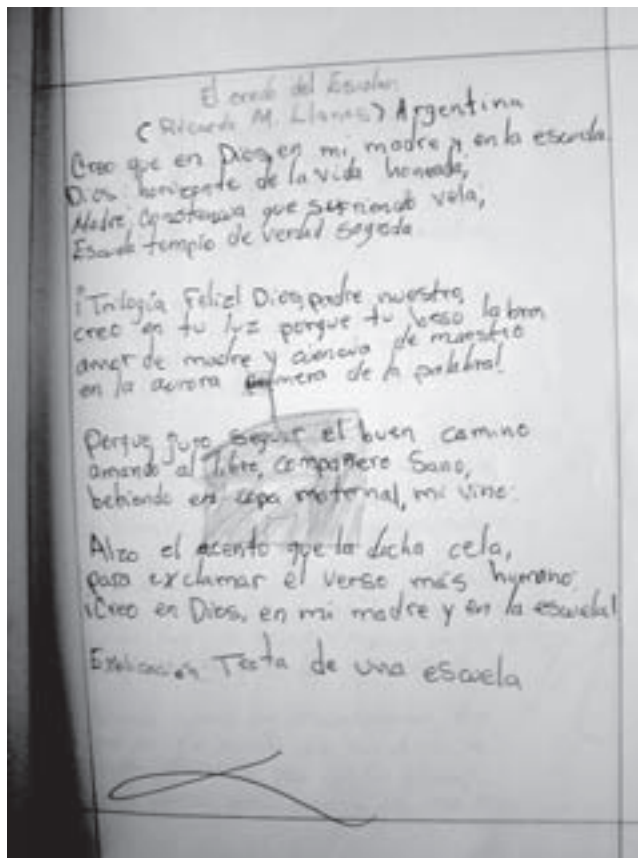 El credo del Escolar
(Ricardo M. Llanes) Argentina
Creo que en Dios, en mi madre y en la escuela.
Dios: horizonte de la vida honrada,
Madre, Constancia que sufriendo vela,
Escuela templo de verdad sagrada

¡Trilogía Feliz! Dios, padre nuestro,
creo en tu luz porque tu beso labra
amor de madre y ciencia de maestro
en la aurora primera de la palabra!

Porque jugo seguir el buen camino
amando al libre, compañero Sano,
bebiendo en copa maternal, mi vino.

Alzo el acento que la dicha cela,
para exclamar el verso más humano:
¡Creo en Dios, en mi madre y en la escuela!

Explicación Trata de una escuela